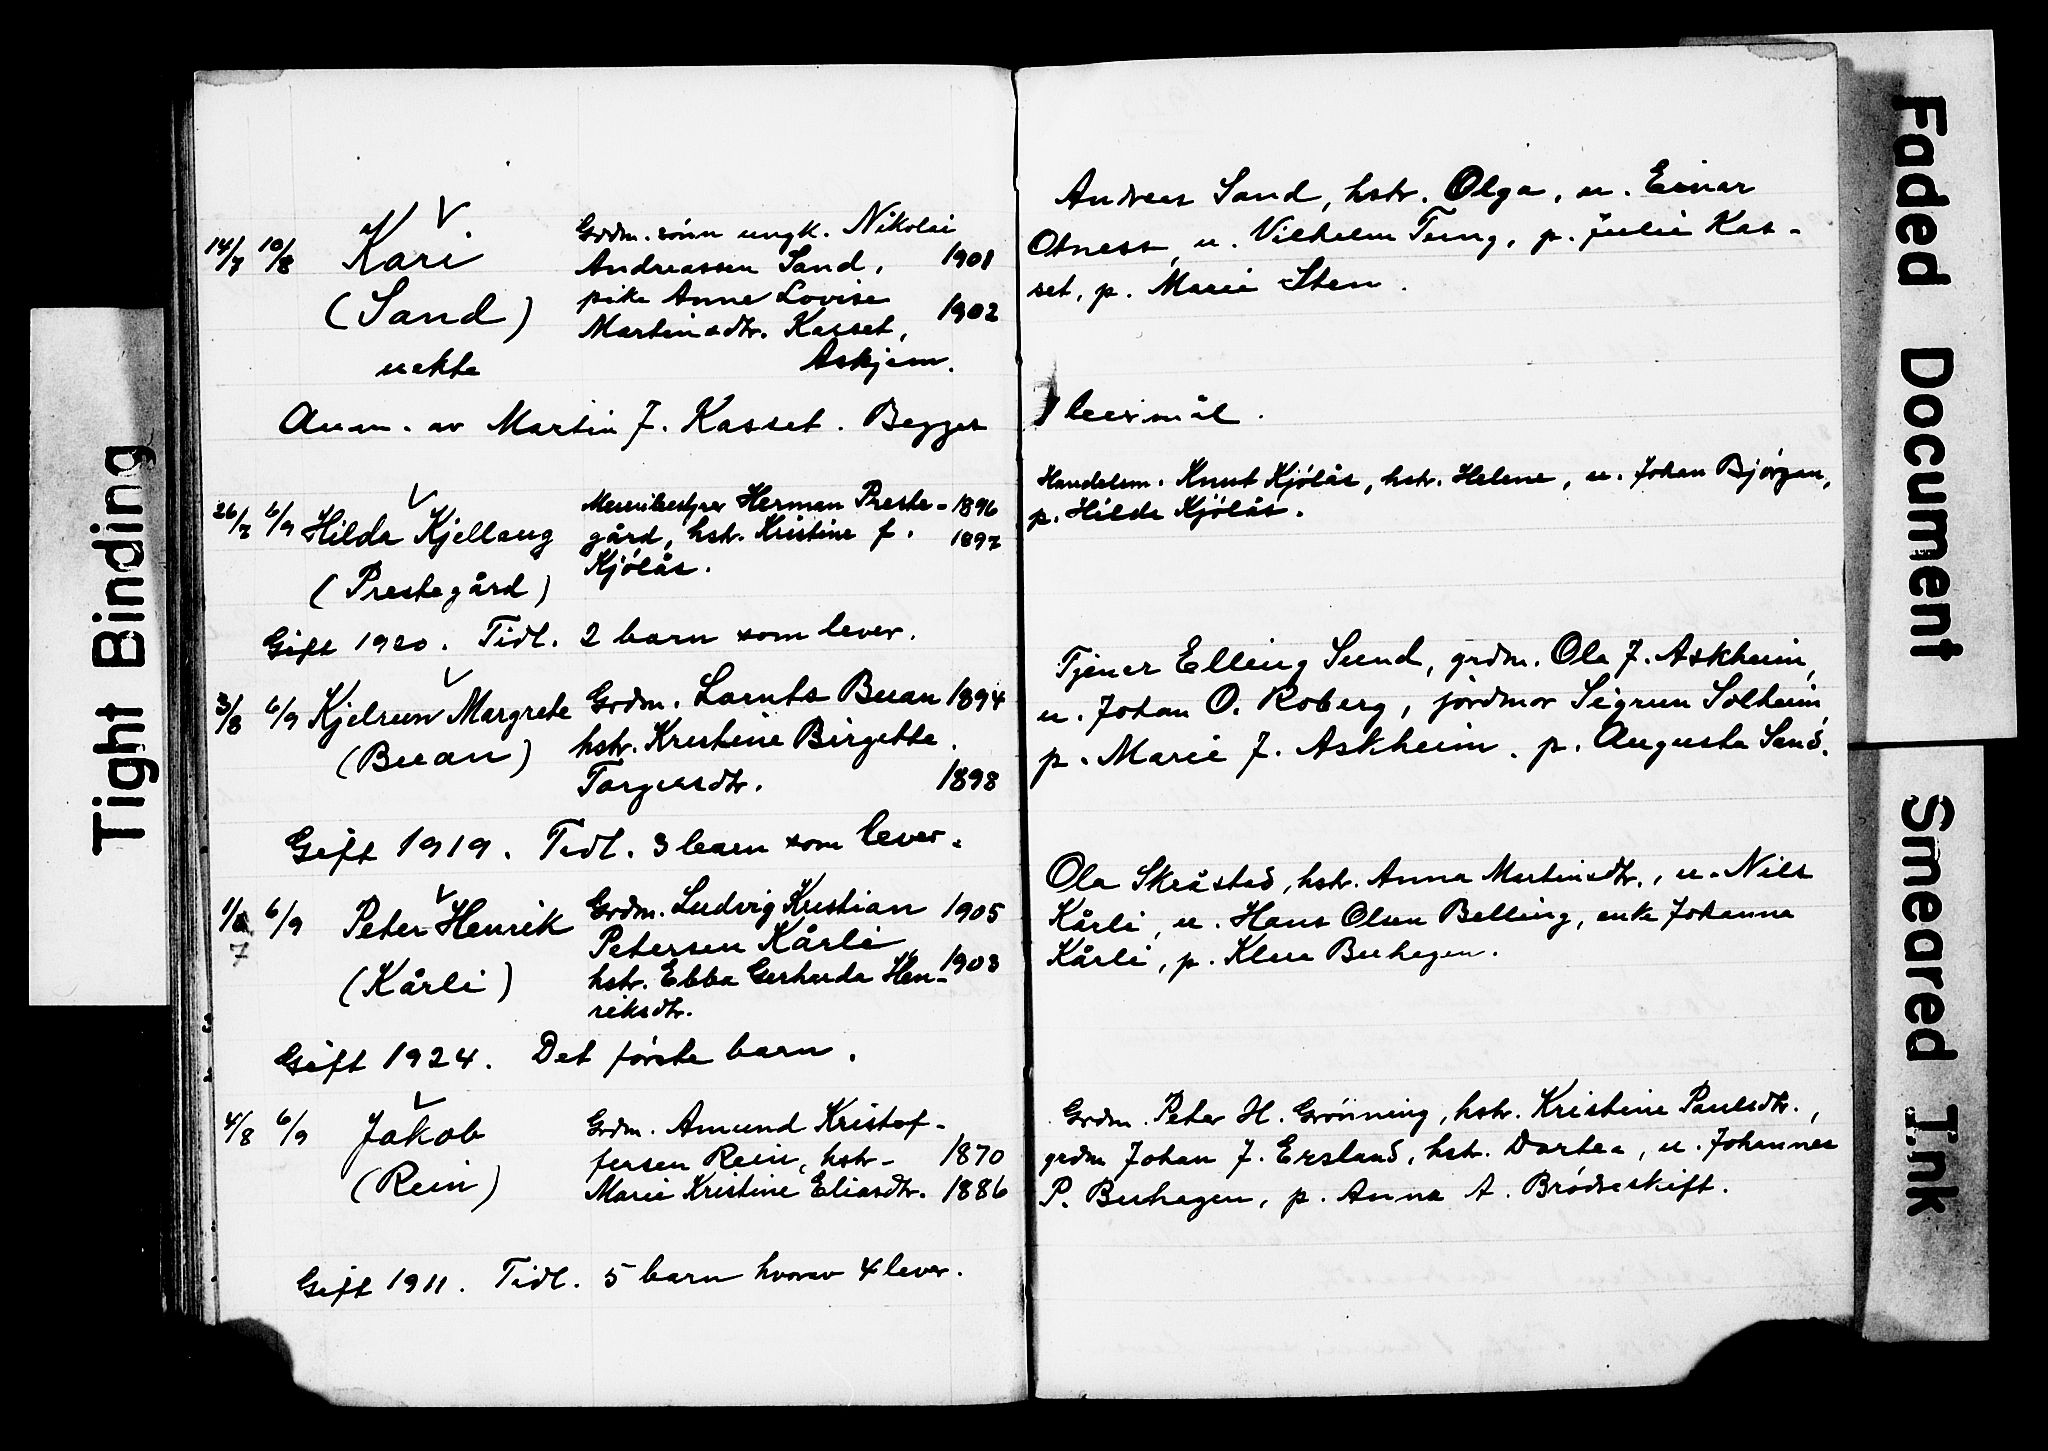 Tight Binding
14/7 10/8 Kari
(Sand)
uekte
Grdm. sönn ungk. Nikolai
Andreassen Sand, 1901
pike Anne Lovise
Martinsdtr. Kasset, 1902
Askjem.
Anm. av Martin J. Kasset. Begges
26/7 6/9 Hilda Kjellaug
(Prestegård)
Meieribestyrer Herman Preste- 1896
gård, hstr. Kristine f. 1897
Kjölås.
Gift 1920. Tidl. 2 barn som lever.
3/8 6/9 Kjelrun Margrete
(Buan)
Grdm. Lornts Buan 1894
hstr. Kristine Birgitte
Torgersdtr. 1898
Gift 1919. Tidl. 3 barn som lever.
6/9 Peter Henrik
7
(Kårli)
Grdm. Ludvig Kristian 1905
Petersen Kårli,
hstr. Ebba Gerharda Hen- 1903
riksdtr.
Gift 1924. Det förste barn.
4/8 6/9 Jakob
(Rein)
Grdm. Amund Kristof-
fersen Rein, hstr. 1870
Marie Kristine Eliasdtr. 1886
Gift 1911. Tidl. 5 barn hvorav 4 lever.
Andreas Sand, hstr. Olga, u. Einar
Otness, u. Vilhelm Tung, p. Julie Kas-
set, p. Marie Sten.
leiermål.
Handelsm. Knut Kjölås, hstr. Helene, u. Johan Bjørgan,
p. Hilda Kjölås.
Tjener Elling Sund, grdm. Ola J. Askheim,
u. Johan O. Roberg, jordmor Sigrun Solheim,
p. Marie J. Askheim, p. Augusta Sand.
Ola Skråstad, hstr. Anna Martinsdtr., u. Nils
Kårli, u. Hans Olsen Belling, enke Johanna
Kårli, p. Klara Buhagen.
Grdm. Peter H. Grönning, hstr. Kristine Paulsdtr.,
grdm Johan J. Ersland, hstr. Dortea, u. Johannes
P. Buhagen, p. Anna A. Brödreskift.
Faded Document
Smeared Ink